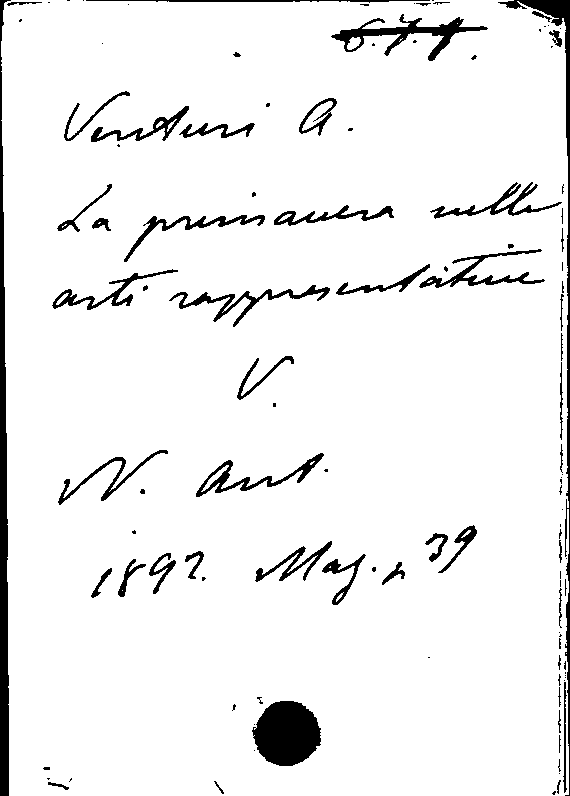 6.7.9.
Venturi A.
La primavera nelle
arti rappresentative
V.
N. Ant.
1892. Mag. p 39